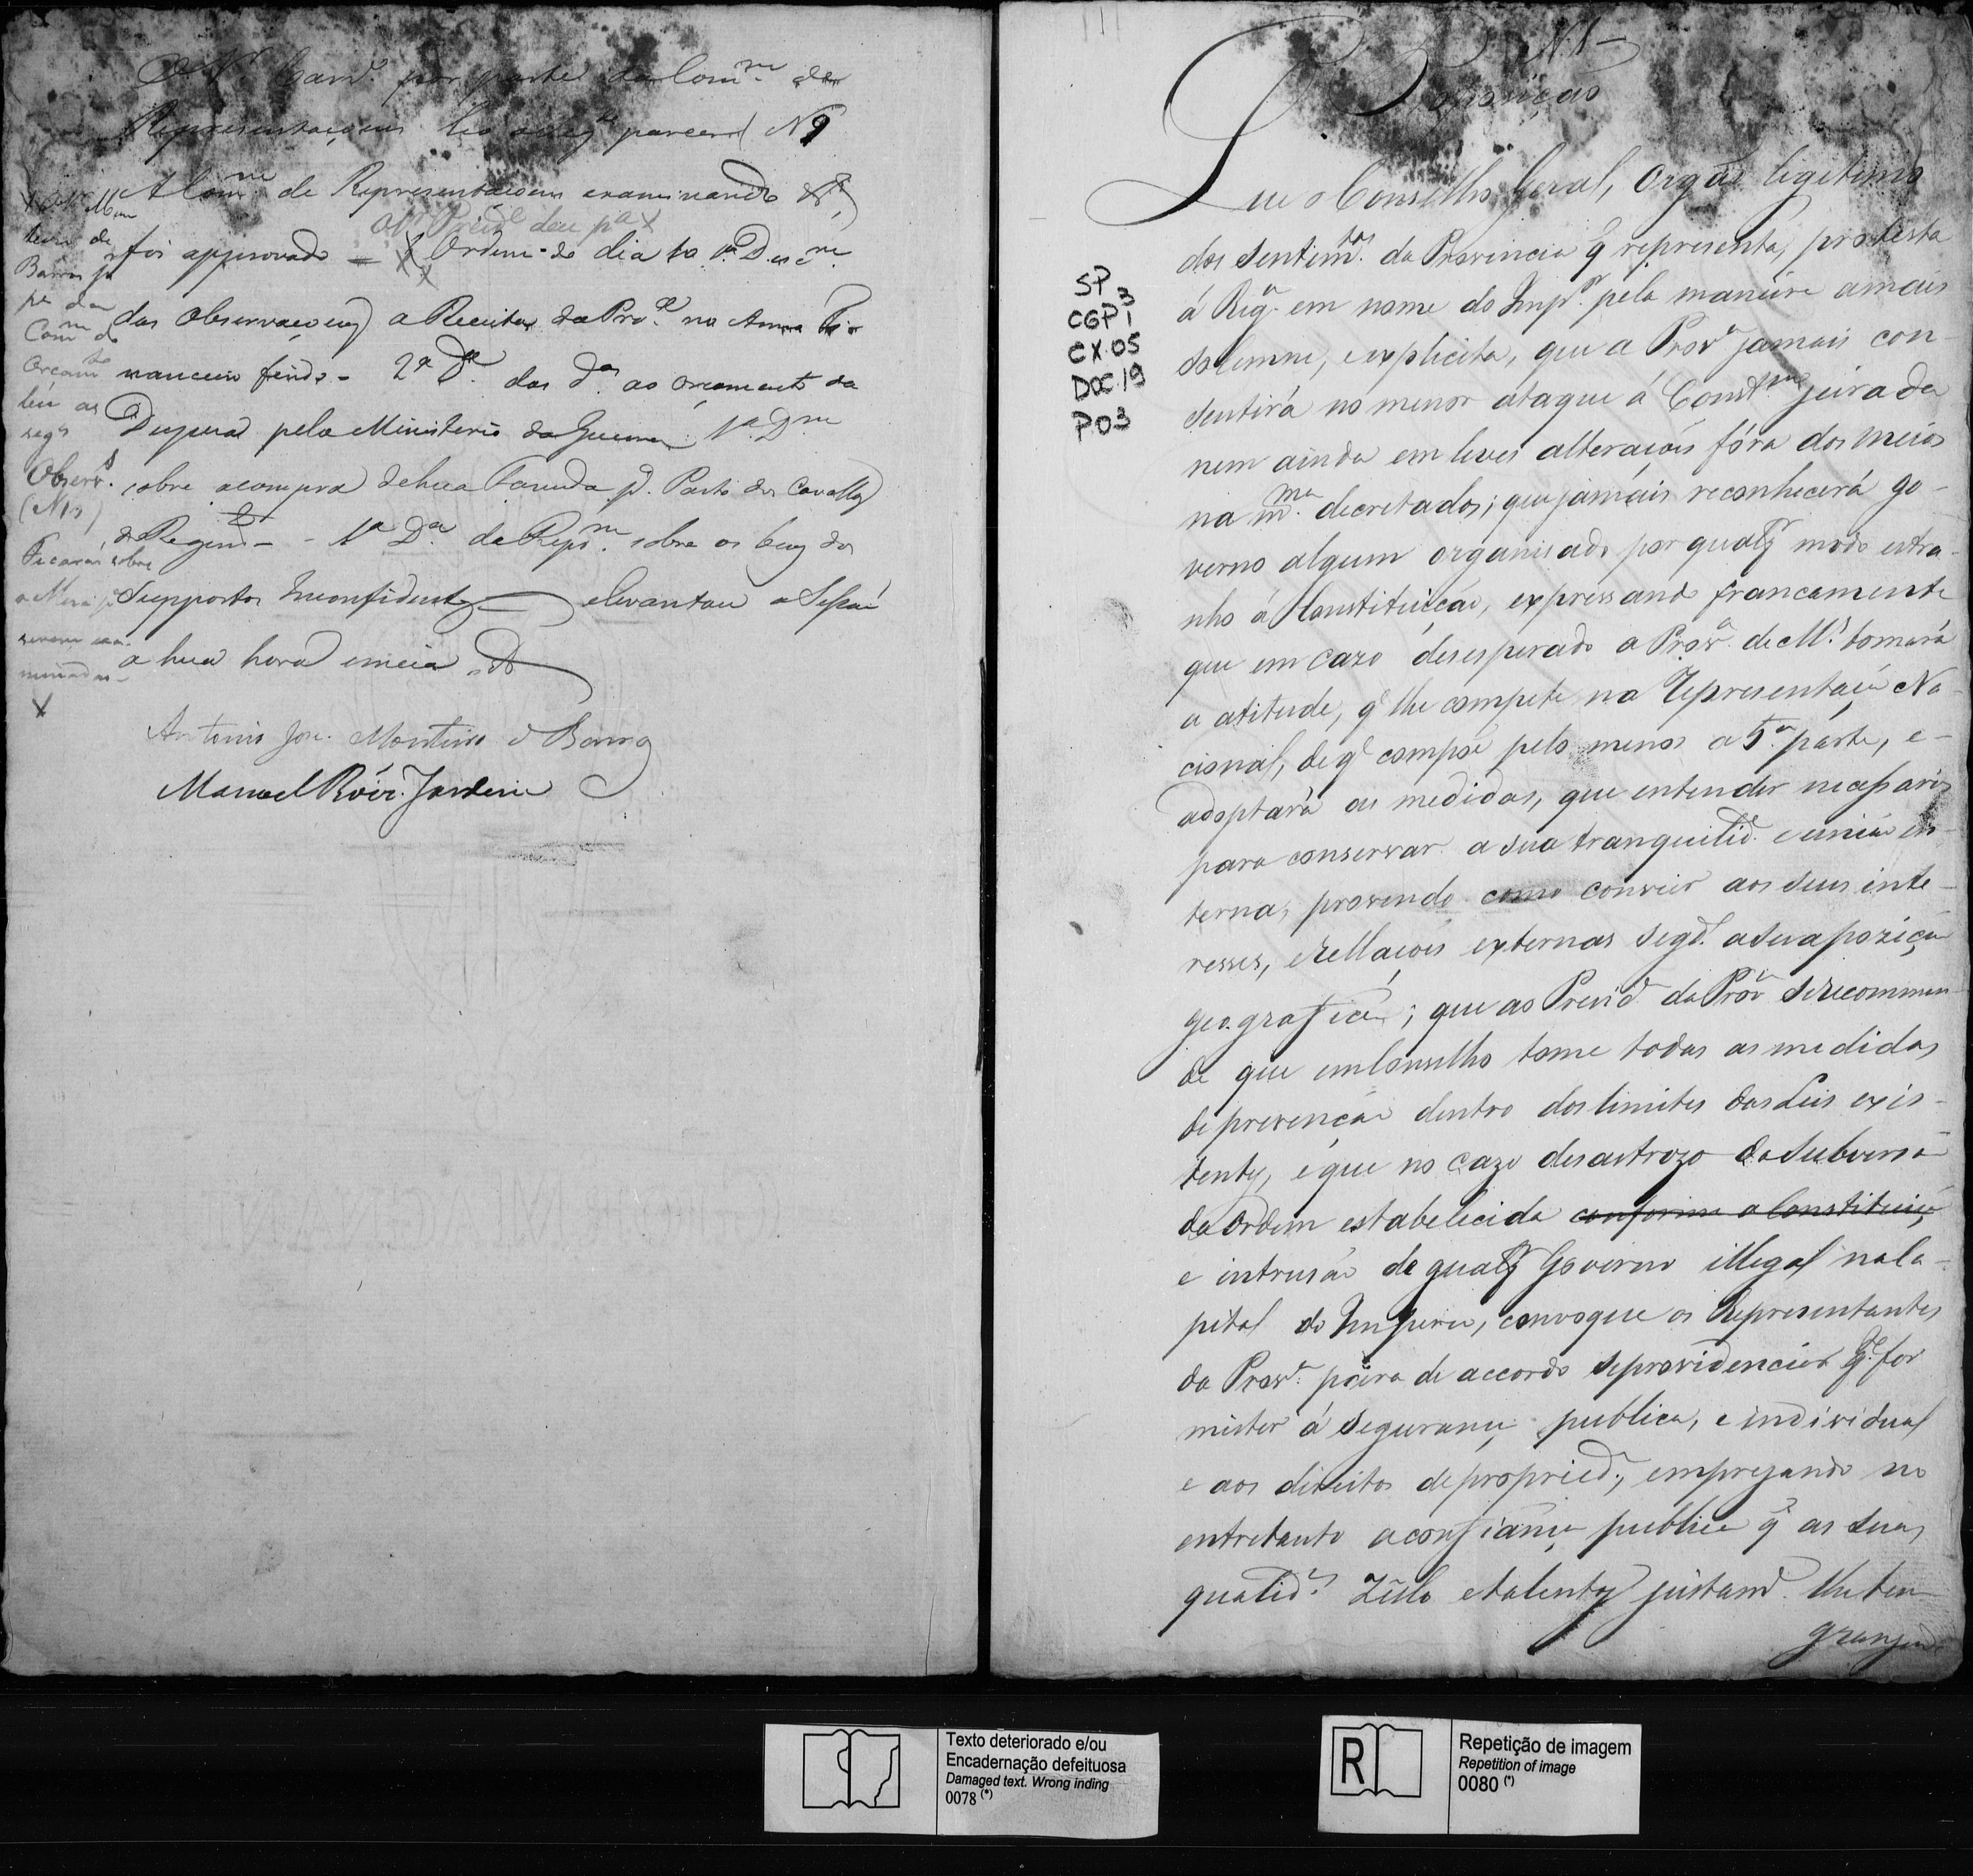 por parte da Com.m de
Representaçoens leo o seg.te parecer (N 9
A Com.m de Representaçoens examinando &ª)
O Sr. Prezid.e deu p.a X
foi approvado = Ordem do dia 1a Discm.
das Observaçoens a Receita da Pro.ca no Anno Fi
nanceiro findo - 2ª Da. das d.as ao orcamento da
Despeza pela Ministerio da Guerra 1ª D.m
sobre a compra de hua Fazenda p.a Pasto dos Cavallos
do Regim - 1ª D.a da Repr.m sobre os bens dos
Suppostos Inconfidentes elevantou a Sessaõ
a hua hora emeia
Monteiro de
Barros p
pe da
Com.m do
Orcam.to
leu as
seg.s
Obser.s
(N 13)
Ficaraõ sobre
a Meza p
serem exa
minadas
X
Antonio Joze Monteiro de Barros
Manoel Roiz. Jardim
N. 1
Proposiçaõ
Que o Conselho Geral, Orgaõ legitimo
dos sentim.tos da Provincia q representa, protesta
á Reg.a em nome do Imp.or pela maneira amais
solemne, e explicita, que a Prov.a jamais con-
sentirá no menor ataque á Const.am jurada
nem ainda em leves alteraçoẽs fóra dos meios
na m.ma decretados; que jamais reconhecerá go-
verno algum organisado por qualq.r modo estra-
nho á Constituiçaõ, expressando francamente
que em cazo desesperado a Prov.a de M.s tomará
a atitude, q lhe compete na Representaçaõ Na-
cional, de q compoẽ pelo menos a 5.a parte, e-
adoptará as medidas, que entender necessarias
para conservar a sua tranquilid.e e uniaõ in-
terna, provendo como convier aos seus inte-
resses, erellaçoẽs externas segd.o a sua poziçaõ
geografica; que ao Prezid.e da Prov.a se recommen-
de que em Conselho tome todas as medidas
de prevençaõ dentro dos limites das Leis exis-
tentes, e que no cazo desastrozo da subversaõ
da Ordem estabelecida conforme a Constituiçaõ
e intrusaõ de qualq.r Governo illegal na Ca-
pital do Imperio, convoque os Representantes
da Prov.a para de accordo se providenciar q.to for
mister á segurança publica, e individual
e aos direitos de propried.e, empregando no
entretanto a confiança publica q as suas
qualid.es Zêlo e talentos justam.e lhe tem
grangeado
SP
CGP 1 3
CX.05
DOC.19
P03
Texto deteriorado e/ou
Encadernação defeituosa
Damaged text. Wrong inding
0078 (*)
R
Repetição de imagem
Repetition of image
0080 (*)